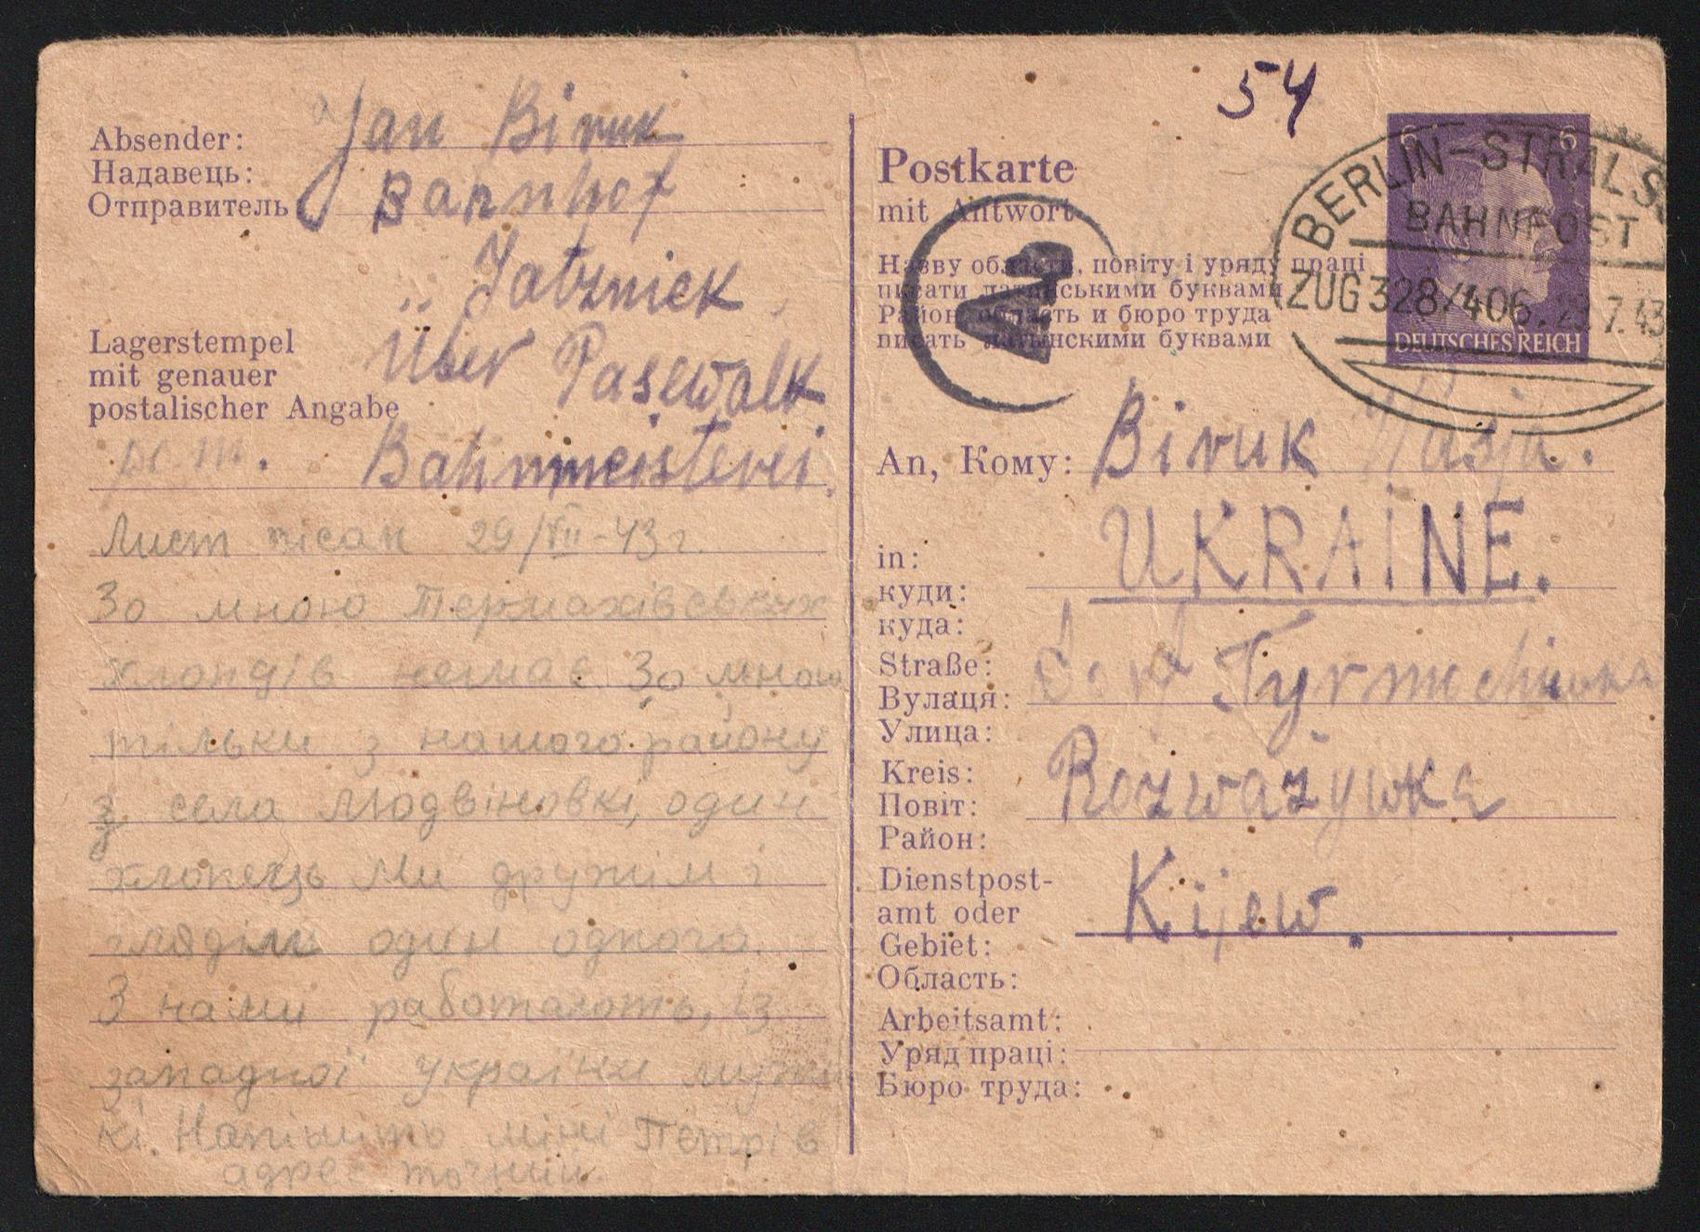 Absender:
Надавець:
Отправитель
Jan Biruk
Bahnhof
Jatznick
Über Pasewalk
Bahnmeisterei.
Lagerstempel
mit genauer
postalischer Angabe
Лист пісан 29/VII-43 г.
Зо мною Термахівських
хлопців немає. Зо мною
тільки з нашого району
з села Людвіновкі, один
хлопець Ми дружим і
глядім один одного.
З нами работають, із
западної україни мужи
кі. Напишить міні Петрів
адрес точний.
54
Postkarte
mit Antwort
Назву області, повіту і уряду праці
писати латинськими буквами
Район, область и бюро труда
писать латынскими буквами
Ab
6 6
DEUTSCHES REICH
BERLIN-STRALS
BAHNPOST
ZUG 328/406. 29.7.43
An, Кому: Biruk Wasja.
in:
куди:
куда:
UKRAINE.
Straße:
Вулаця:
Улица:
Dorf
Kreis:
Повіт:
Район:
Rozważywka
Dienstpost-
amt oder
Gebiet:
Область:
Kijew.
Arbeitsamt:
Уряд праці:
Бюро труда: